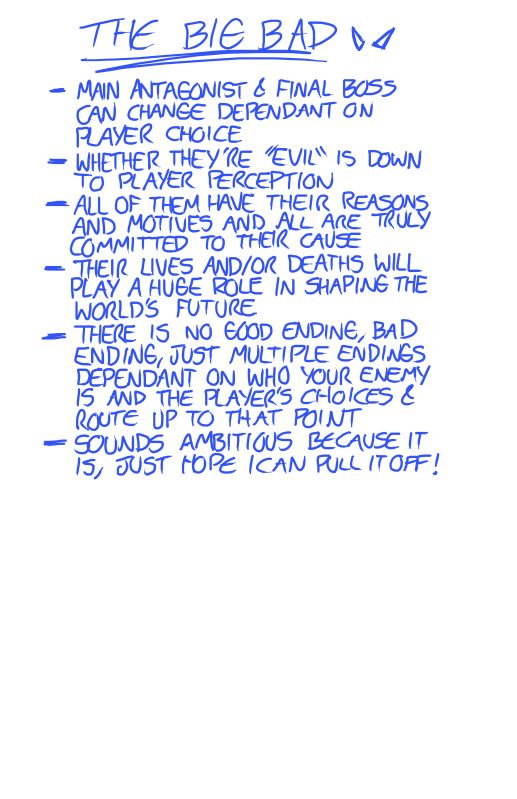 THE BIG BAD
- MAIN ANTAGONIST & FINAL BOSS
CAN CHANGE DEPENDANT ON
PLAYER CHOICE
- WHETHER THEY'RE "EVIL" IS DOWN
TO PLAYER PERCEPTION
- ALL OF THEM HAVE THEIR REASONS
AND MOTIVES AND ALL ARE TRULY
COMMITTED TO THEIR CAUSE
- THEIR LIVES AND/OR DEATHS WILL
PLAY A HUGE ROLE IN SHAPING THE
WORLD'S FUTURE
- THERE IS NO GOOD ENDING, BAD
ENDING, JUST MULTIPLE ENDINGS
DEPENDANT ON WHO YOUR ENEMY
IS AND THE PLAYER'S CHOICES &
ROUTE UP TO THAT POINT
- SOUNDS AMBITIOUS BECAUSE IT
IS, JUST HOPE I CAN PULL IT OFF!